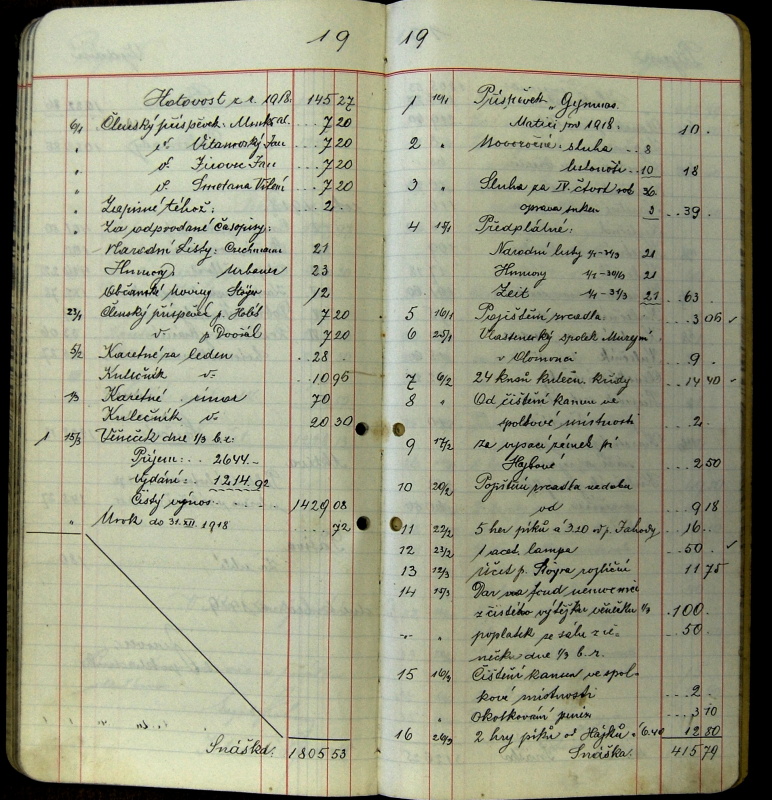 19
Hotovost z r. 1918. 145 27
6/1 Členský příspěvek: 7 20
" d° Vitanovský Jan 7 20
" d° Jírovec Jan 7 20
" d° Smetana Vilém 7 20
" Zápisné téhož: 2
" Za odprodané časopisy:
Národní Listy: Czechmann 21
Humory Urbanec 23
Občanské Noviny 12
23/1 Členský příspěvek p. 7 20
d° p Dvořák 7 20
5/2 Karetné za leden 28
Kulečník d° 10 96
1/3 Karetné únor 70
Kulečník d° 20 30
1 15/3 Věneček dne 1/3 b. r.
Příjem: 2644.-
Vydání: 1214.92
Čistý výnos 1429 08
" Úrok do 31. XII. 1918 72
Snáška. 1805 53
19
1 10/1 Příspěvek "Gymnas.
Matici pro 1918. 10.
2 " Novoročné: sluha 8
10 18
3 " Sluha za IV. čtvrt rok 36.
oprava 3 39.
4 15/1 Předplatné:
Národní listy 1/1-31/3 21
Humory 1/1-30/6 21
Zeit 1/1-31/3 21 63.
5 16/1 Pojištění zrcadla 3 06
6 25/1 Vlastenecký spolek Muzejní
v Olomouci 9.
7 6/2 24 kusů kulečn. křídy 14 40
8 " Od čištění kamen ve
spolkové místnosti 2.
9 17/2 za vysací zámek pí
Hajkové 2 50
10 20/2 Pojištění zrcadla
9 18
11 22/2 5 her piků á 3.20 od p. Jahody 16.
12 23/2 1 acet. lampa 50.
13 12/3 Účet p. 11 75
14 15/3 Dar na fond nemocnice
z čistého výtěžku věnečku 1/3 100.
" " poplatek ze sálu z vě-
nečku dne 1/3 b. r. 50.
15 16/3 Čištění kamen ve spol-
kové místnosti 2.
" Okolkování peněz 3 10
16 26/3 2 hry piků od Hájků á 6.40 12 80
Snáška. 415 79